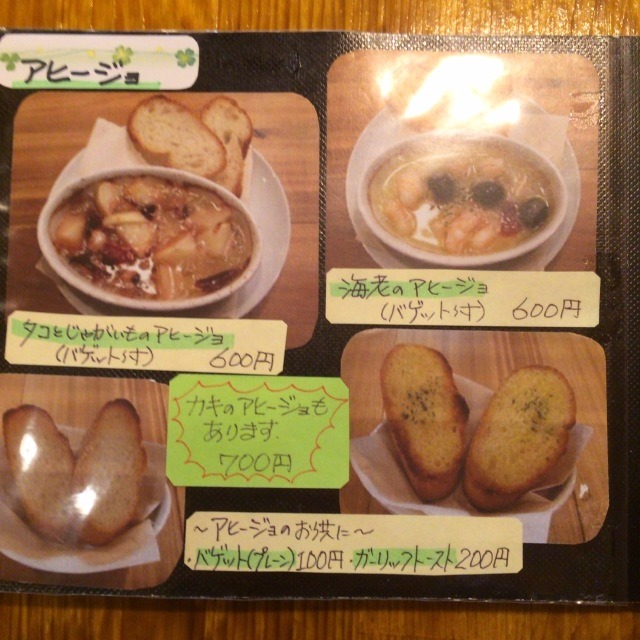 アヒージョ
タコとじゃがいものアヒージョ
(バゲット付) 600円
海老のアヒージョ
(バゲット付) 600円
カキのアヒージョも
あります
700円
～アヒージョのお供に～
・バゲット(プレーン)100円・ガーリックトースト200円